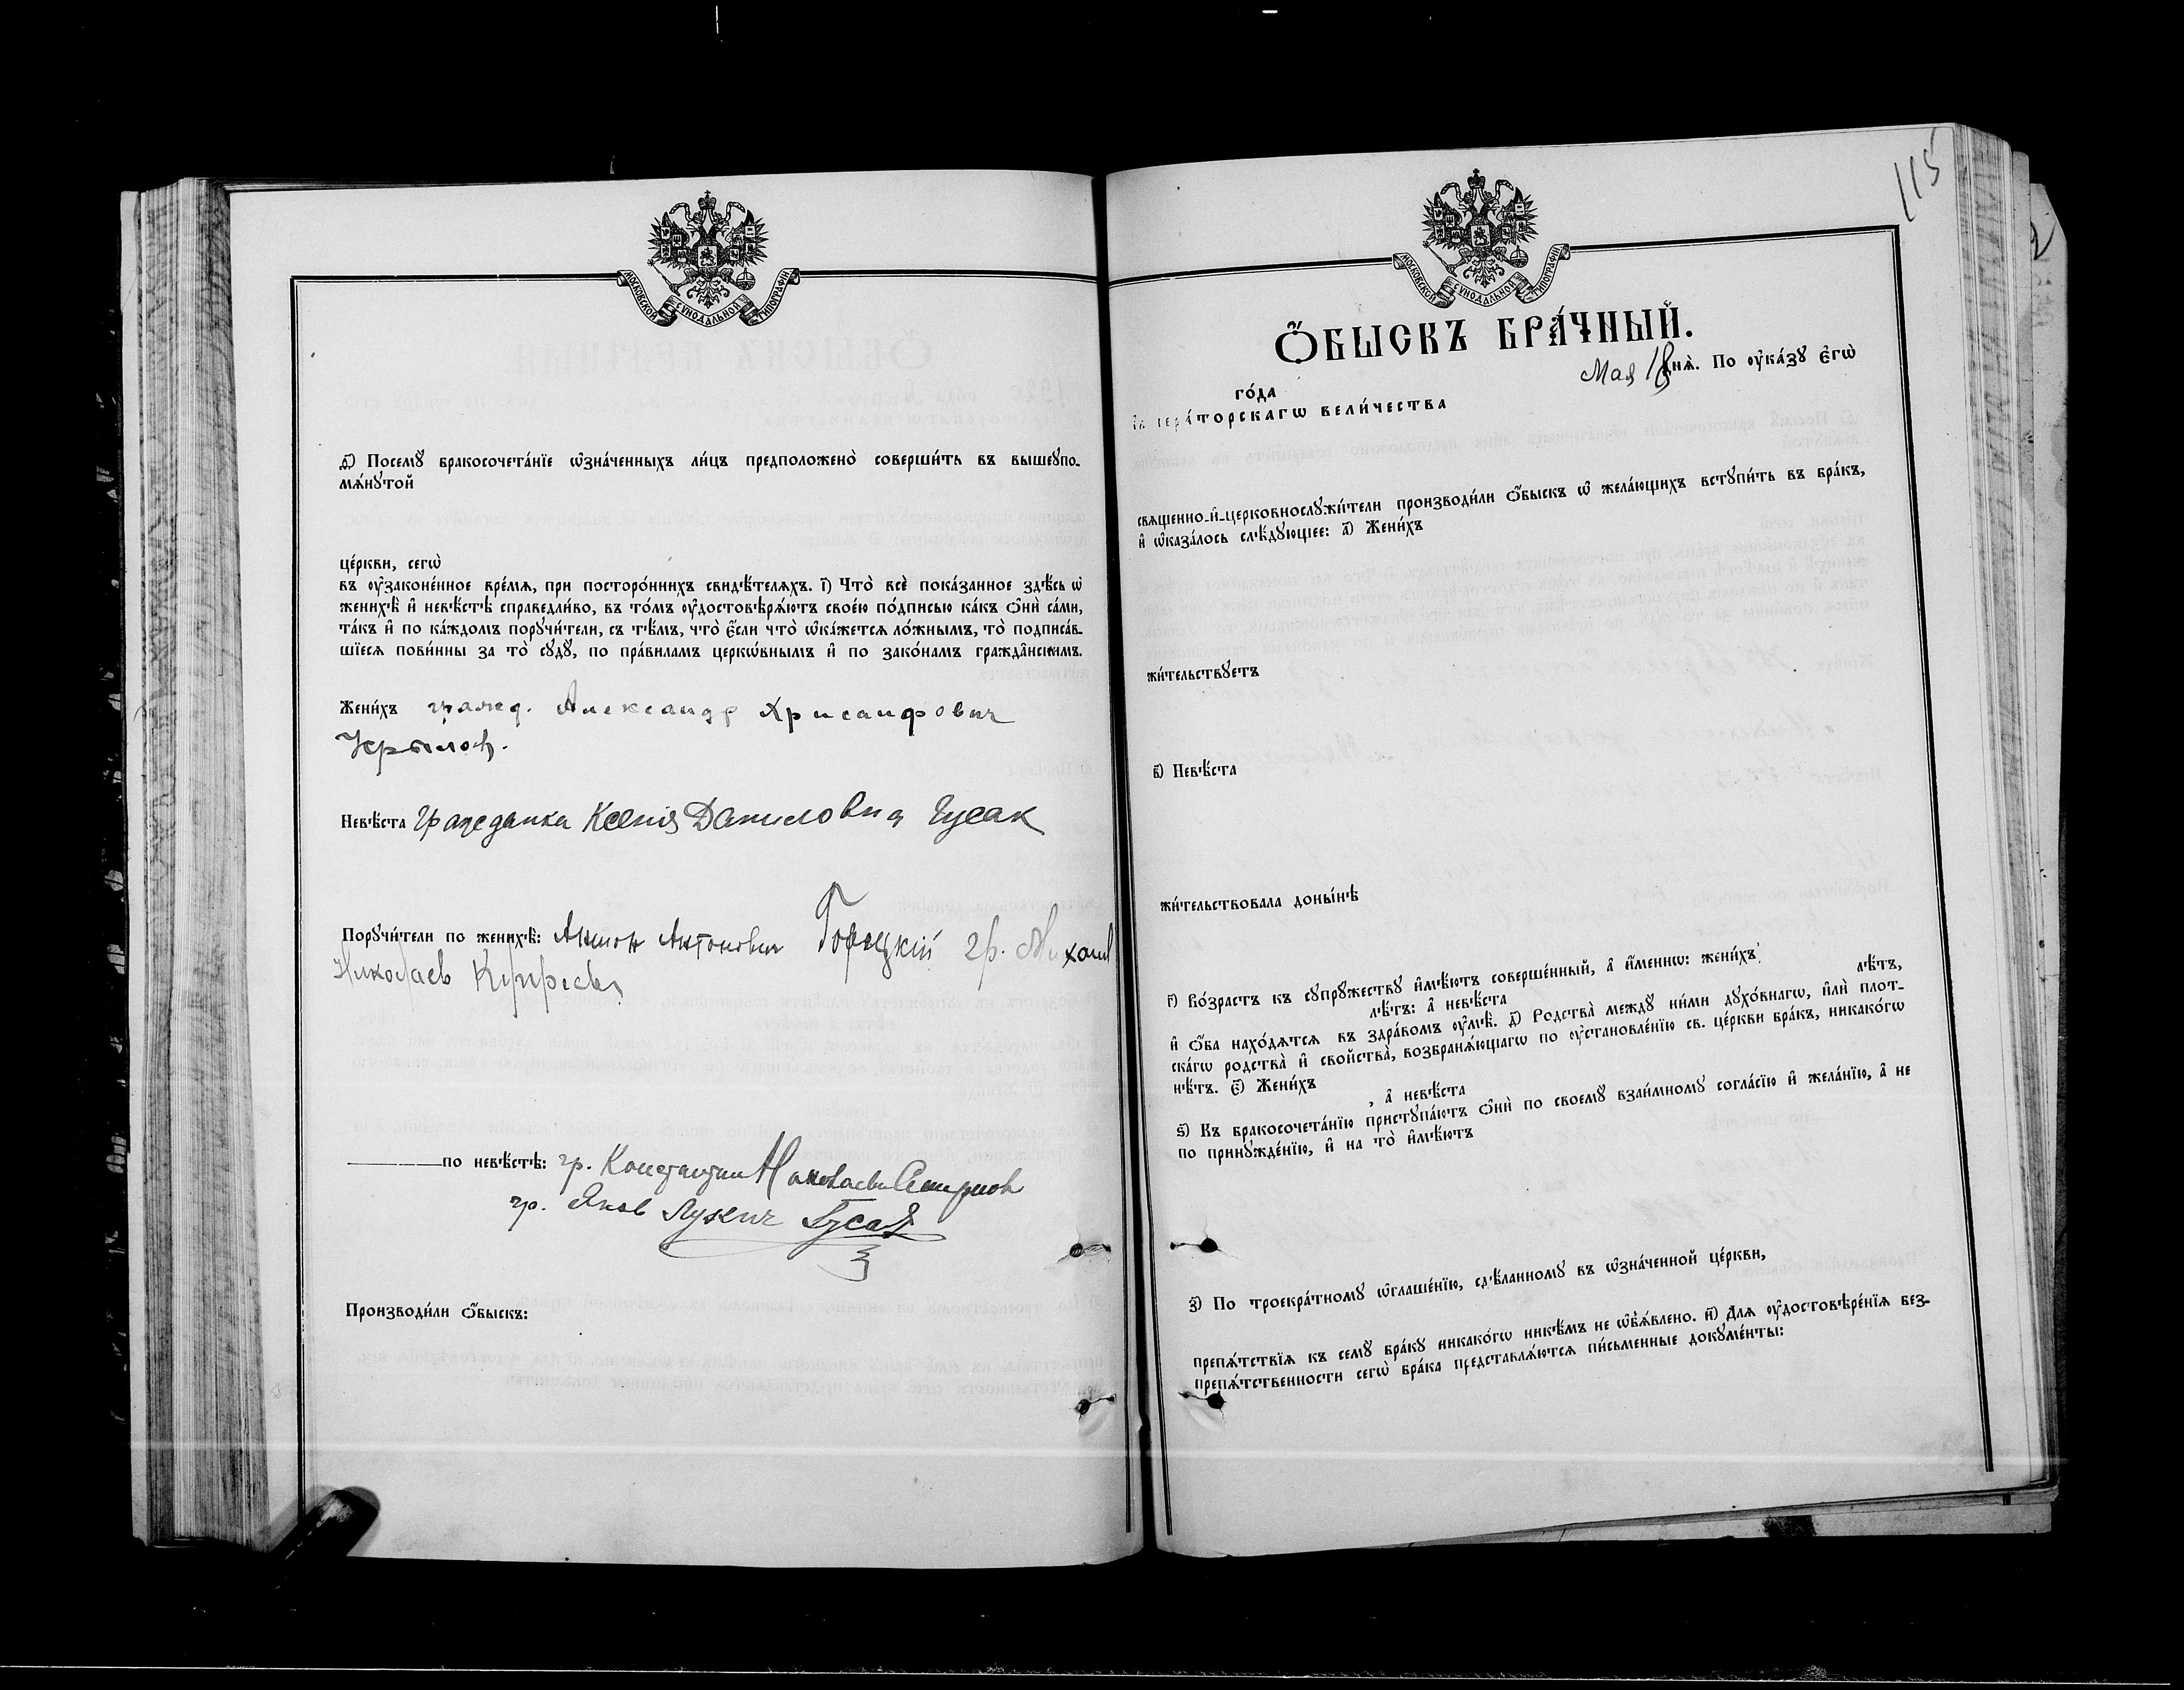 МОСКОВСКОЙ СѴНОДАЛЬНОЙ ТИПОГРАФІИ
ѳ҃) Посемꙋ̀ бракосочета́нїе ѡ҆зна́ченныхъ ли́цъ предположено̀ соверши́ть въ вышеꙋпо-
мѧ́нꙋтой
це́ркви, сегѡ̀
въ ᲂу҆законе́нное вре́мѧ, при посторо́ннихъ свидѣ́телѧхъ. і҃) Что̀ всѐ пока́занное здѣ́сь ѡ҆
женихѣ̀ и҆ невѣ́стѣ справедли́во, въ то́мъ ᲂу҆достовѣрѧ́ютъ свое́ю по́дписью ка́къ ѻ҆нѝ са́ми,
та́къ и҆ по ка́ждомъ порꙋчи́тели, съ тѣ́мъ, что̀ є҆́сли что̀ ѡ҆ка́жетсѧ ло́жнымъ, то̀ подписа́в-
шїесѧ пови́нны за то̀ сꙋдꙋ̀, по пра́виламъ церкѡ́внымъ и҆ по зако́намъ гражда̑нскимъ.
Жени́хъ гражд. Александр Хрисанфович
Крылов.
Невѣ́ста Гражданка Ксенія Даниловна Гусак
Порꙋчи́тели по женихѣ̀: Антон Антонович Горецкій гр. Михаил
Николаев
по невѣ́стѣ: гр. Константин Николаев Смирнов
гр. Яков Лукич Гусак
Производи́ли ѻ҆́быскъ:
115
МОСКОВСКОЙ СѴНОДАЛЬНОЙ ТИПОГРАФІИ
Ѻ҆́БЫСКЪ БРА́ЧНЫЙ.
го́да Мая 18 днѧ̀. По ᲂу҆ка́зꙋ є҆гѡ̀
І҆мпера́торскагѡ вели́чества
свѧщенно-и҆-церковнослꙋжи́тели производи́ли ѻ҆́быскъ ѡ҆ жела́ющихъ встꙋпи́ть въ бра́къ,
и҆ ѡ҆каза́лось слѣ́дꙋющее: а҃) Жени́хъ
жи́тельствꙋетъ
в҃) Невѣ́ста
жи́тельствовала доны́нѣ
г҃) Во́зрастъ къ сꙋпрꙋ́жествꙋ и҆мѣ́ютъ соверше́нный, а҆ и҆́меннѡ: жени́хъ лѣ́тъ,
лѣ́тъ: а҆ невѣ́ста
и҆ ѻ҆́ба нахо́дѧтсѧ въ здра́вомъ ᲂу҆мѣ̀. д҃) Родства̀ междꙋ ни́ми дꙋхо́внагѡ, и҆лѝ плот-
ска́гѡ родства̀ и҆ свойства̀, возбранѧ́ющагѡ по ᲂу҆становле́нїю св. це́ркви бра́къ, никако́гѡ
нѣ́тъ. є҃) Жени́хъ
, а҆ невѣ́ста
ѕ҃) Къ бракосочета́нїю пристꙋпа́ютъ ѻ҆нѝ по своемꙋ̀ взаи́мномꙋ согла́сїю и҆ жела́нїю, а҆ не
по принꙋжде́нїю, и҆ на то̀ и҆мѣ́ютъ
з҃) По троекра́тномꙋ ѡ҆глаше́нїю, сдѣ́ланномꙋ въ ѡ҆зна́ченной це́ркви,
препѧ́тствїѧ къ семꙋ̀ бра́кꙋ никако́гѡ никѣ́мъ не ѡ҆б̾ѧ́влено. и҃) Для ᲂу҆достовѣре́нїѧ без-
препѧ́тственности сегѡ̀ бра́ка представлѧ́ютсѧ пи́сьменные докꙋме́нты: